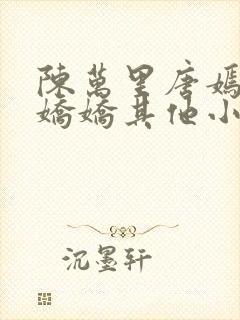 陳萬里唐嫣
嬌嬌其他小
沉墨軒